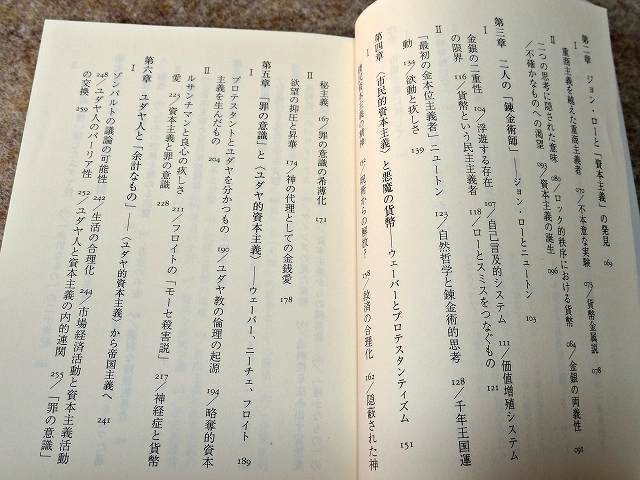 第二章 ジョン・ローと「資本主義」の発見 069
Ⅰ 重商主義を越えた重商主義者 070／不本意な実験 073／貨幣金属説 078
／二つの思考に隠された意味 080／ロック的秩序における貨幣 084／金銀の両義性 092
／不確かなものへの渇望 093／資本主義の誕生 096
第三章 二人の「錬金術師」――ジョン・ローとニュートン 103
Ⅰ 金銀の二重性 104／浮遊する存在 107／自己言及的システム 111／価値増殖システム
の限界 116／貨幣という民主主義者 118／ローとスミスをつなぐもの 121
Ⅱ 「最初の金本位主義者」ニュートン 123／自然哲学と錬金術的思考 128／千年王国運
動 134／欲動と疚しさ 139
第四章 〈市民的資本主義〉と悪魔の貨幣――ウェーバーとプロテスタンティズム 151
Ⅰ 呪術からの解放？ 158／救済の合理化 162／隠蔽された神
秘主義 167／罪の意識の希薄化 171
Ⅱ 欲望の抑圧と昇華 174／神の代理としての金銭愛 178
第五章 「罪の意識」と〈ユダヤ的資本主義〉――ウェーバー、ニーチェ、フロイト 189
Ⅰ プロテスタントとユダヤを分かつもの 190／ユダヤ教の倫理の起源 194／略奪的資本
主義を生んだもの 204
Ⅱ ルサンチマンと良心の疚しさ 211／フロイトの「モーセ殺害説」 217／神経症と貨幣
愛 223／資本主義と罪の意識 228
第六章 ユダヤ人と「余計なもの」――〈ユダヤ的資本主義〉から帝国主義へ 241
Ⅰ ゾンバルトの議論の可能性 242／生活の合理化 244／市場経済活動と資本主義活動
248／ユダヤ人のパーリア性 252／ユダヤ人と資本主義の内的連関 255／「罪の意識」
の交換 259